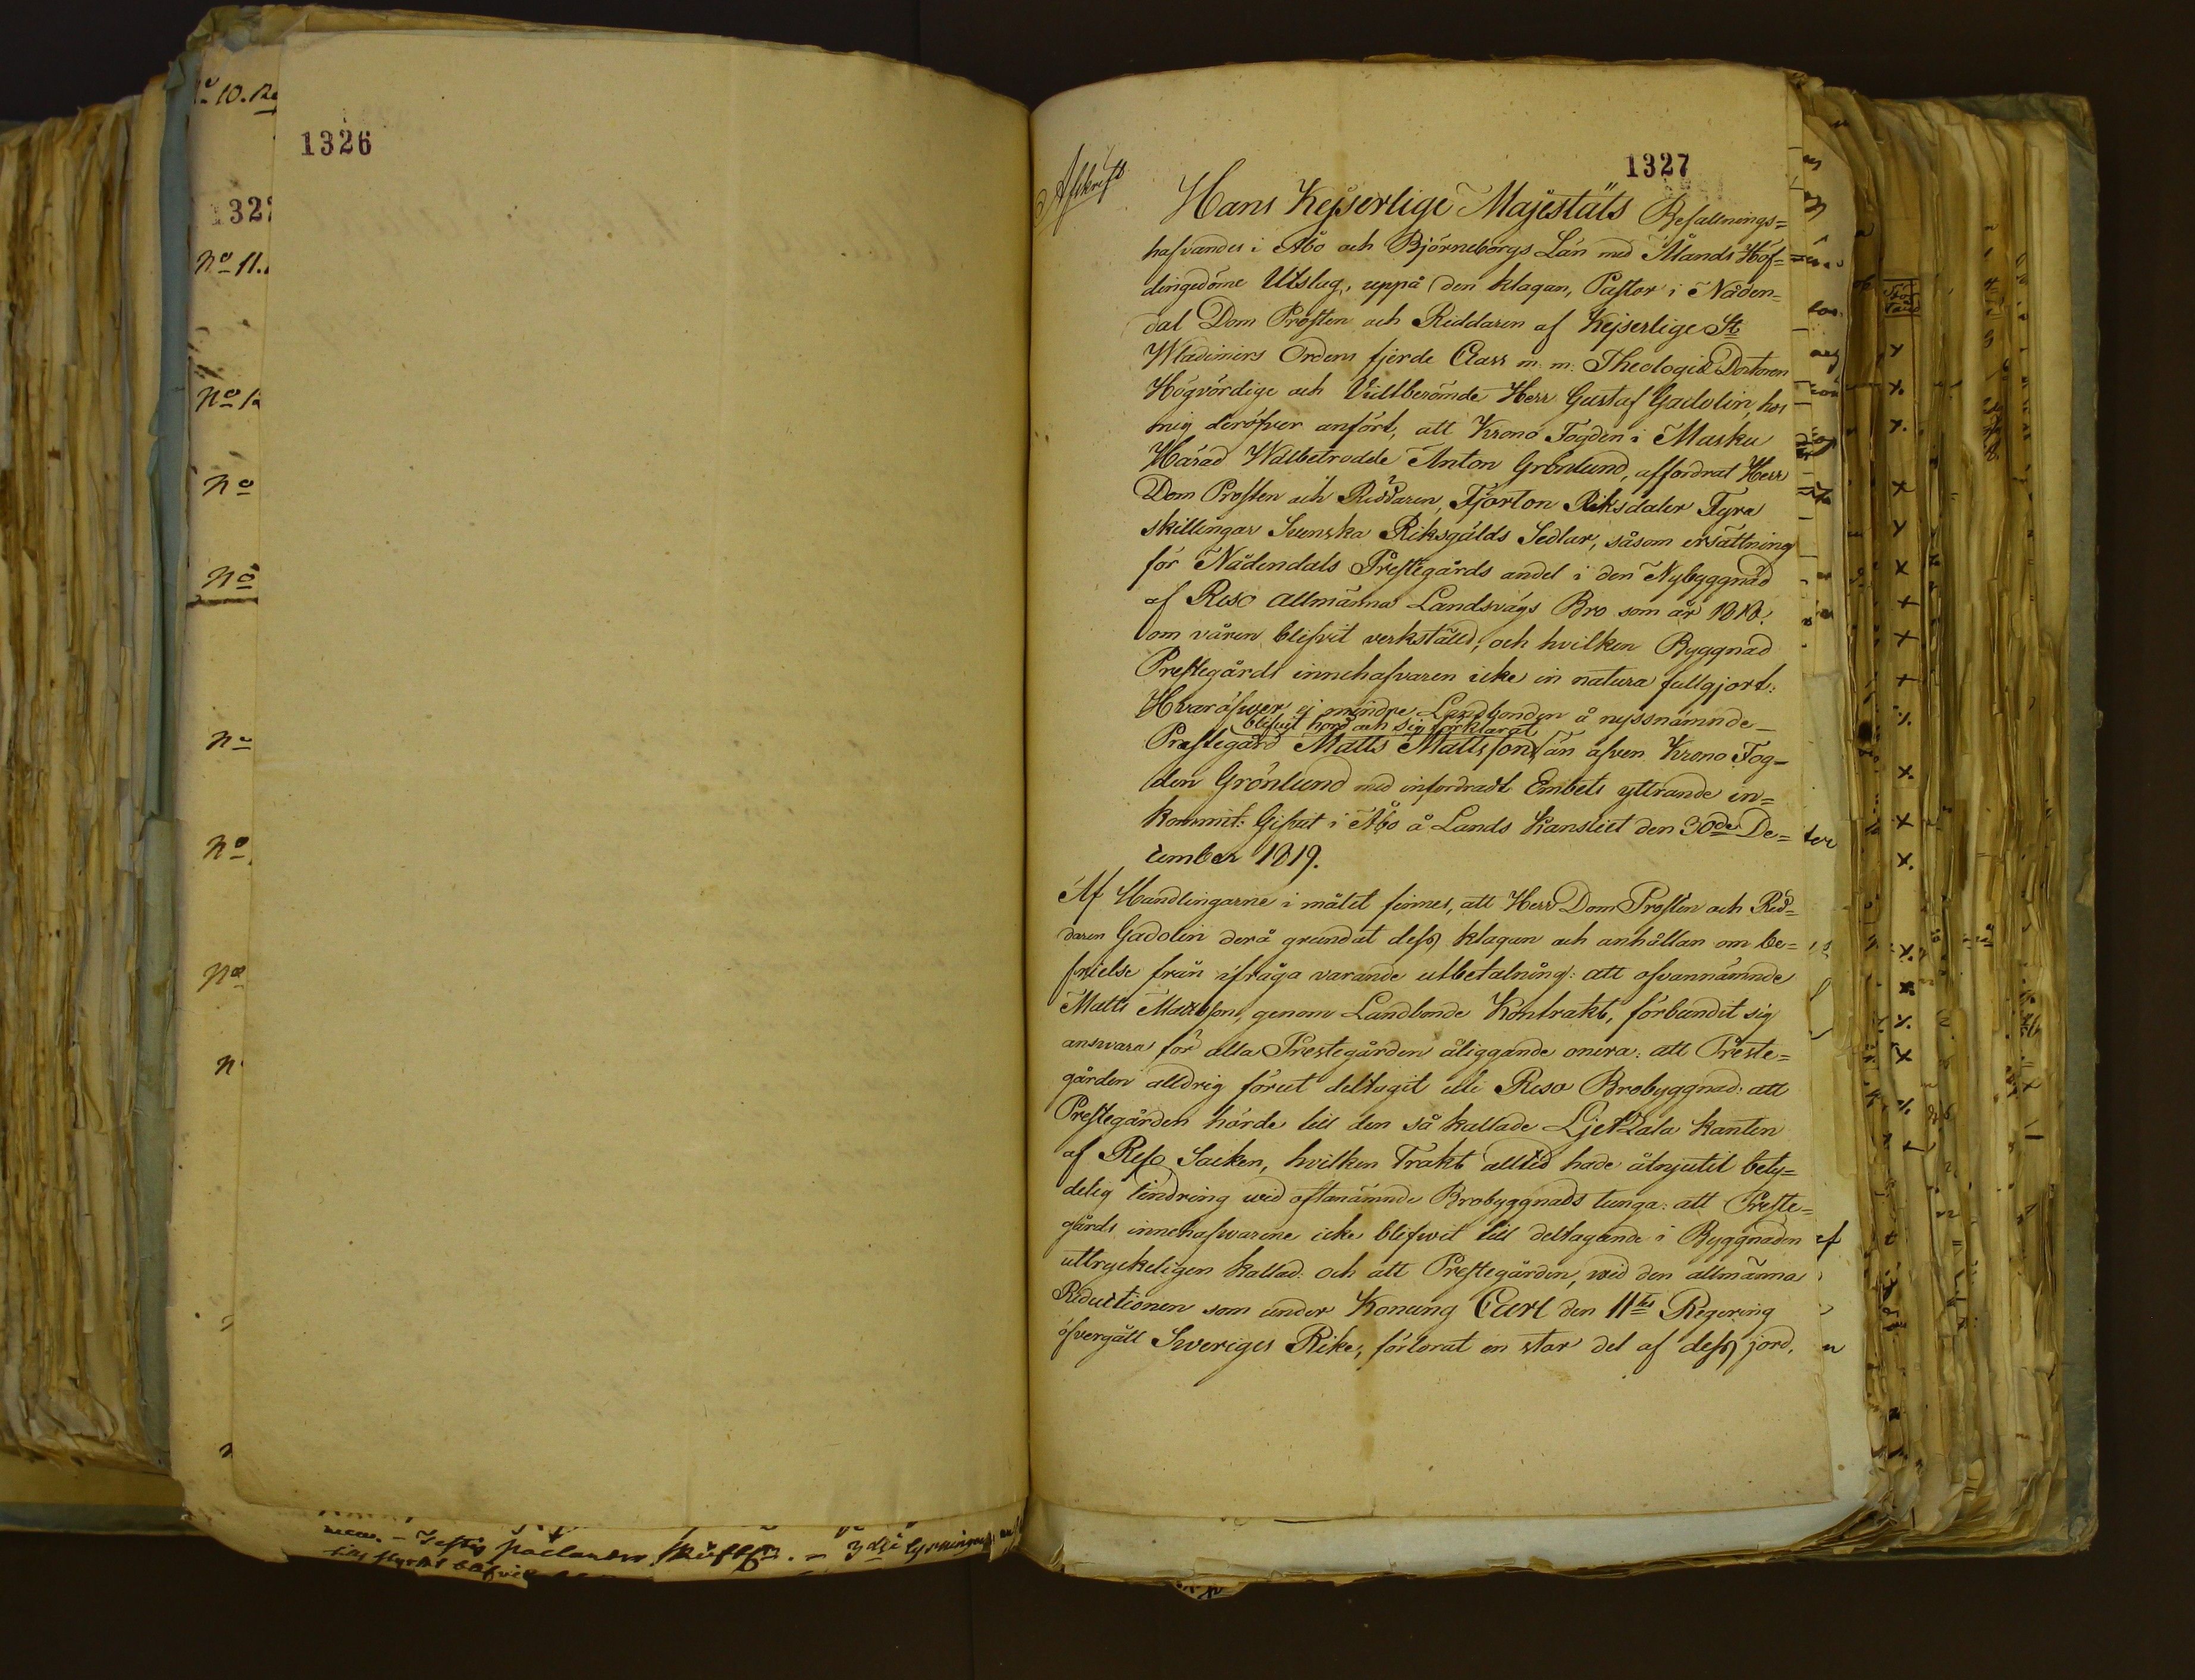 1326
1327
Afskrift
Hans Kejserlige Majestäts Befallnings=
hafvandes i Åbo och Björneborgs Län med Ålands Höf=
dingedöme Utslag, uppå den klagan, Pastor i Nåden=
dal Dom Prosten och Riddaren af Kejserlige St
Wladimirs Ordens fjerde Class m. m. Theologiæ Doctoren
Högvördige och Vidtberömde Herr Gustaf Gadolin, hos
mig deröfver anfört, att Krono Fogden i Masku
Härad Wälbetrodde Anton Grönlund, affordrat Herr
Dom Prosten och Riddaren, Fjorton Riksdaler Fyra
skillingar Svenska Riksgälds Sedlar, såsom ersättning
för Nådendals Prestegårds andel i den Nybyggnad
af Reso allmänna Landsvägs Bro som år 1818.
om våren blifvit verkställd, och hvilken Byggnad
Prestegårds innehafvaren icke in natura fullgjort:
Hvaröfwer ej mindre Landbonden å nyssnämnde
blifvit hörd och sig förklarat
Prestegård Matts Mattsson, än äfven Krono Fog-
den Grönlund med infordradt Embets yttrande in=
kommit: Gifvit i Åbo å Lands Kansliet den 30de De=
cember 1819.
Af Handlingarne i målet finnes, att Herr Dom Prosten och Rid=
daren Gadolin derå grundat dess klagan och anhållan om be=
frielse från ifråga varande utbetalning: att ofvannämnde
Matts Mattsson, genom Landbonde Kontrakt, förbundit sig
answara för alla Prestegården åliggande onera: att Preste=
gården alldrig förut deltagit uti Reso Brobyggnad: att
Prestegården hörde till den så kallade Ljetzala kanten
af Reso Socken, hvilken Trakt alltid hade åtnjutit bety=
delig lindring wid oftanämnde Brobyggnads tunga: att Preste=
gårds innehafwarene icke blifwit till deltagande i Byggnaden
uttryckeligen kallad: och att Prestegården, wid den allmänna
Reductionen som under Konung Carl den 11tes Regering
öfvergått Sweriges Rike, förlorat en stor del af dess jord,